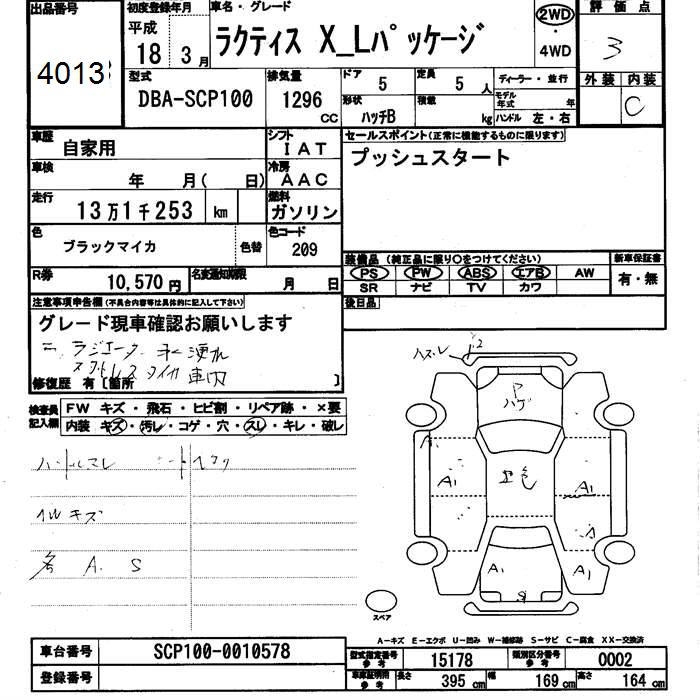 出品番号
4013
初度登録年月
平成
18 3月
車名・グレード
ラクティス X_Lパッケージ
2WD
・
4WD
評価点
3
外装 内装
C
型式
DBA-SCP100
排気量
1296
CC
ドア
5
定員
5 人
形状
ハッチB
積載
kg
ディーラー・並行
モデル年式 年
ハンドル 左・右
車歴
自家用
シフト
IAT
車検
年 月( 日)
冷房
AAC
走行
13万1千253 km
燃料
ガソリン
色
ブラックマイカ
色替
色コード
209
R券
10,570円
名変通知期限
月 日
セールスポイント(正常に機能するものに限ります)
プッシュスタート
装備品 (純正品に限り○をつけてください)
新車保証書
PS PW ABS エアB AW
SR ナビ TV カワ
有・無
後日品
注意事項申告欄(不具合内容等は具体的に記入して下さい)
グレード現車確認お願いします
ラジエータ 水 漉れ
スタットレス タイヤ 車内
修復歴 有〔箇所 〕
検査員記入欄
FW キズ・飛石・ヒビ割・リペア跡・×要
内装 キズ・汚レ・コゲ・穴・スレ・キレ・破レ
キズ
各 A. S
ハズレ
P
ハゲ
A1
A1
A1
A1
A1
S
スペア
A-キズ E-エクボ U-凹み W-補修跡 S-サビ C-腐食 XX-交換済
車台番号
SCP100-0010578
登録番号
型式指定番号
参考
15178
類別区分番号
参考
0002
車庫証明用
参考
長さ 395 cm
幅 169 cm
高さ 164 cm